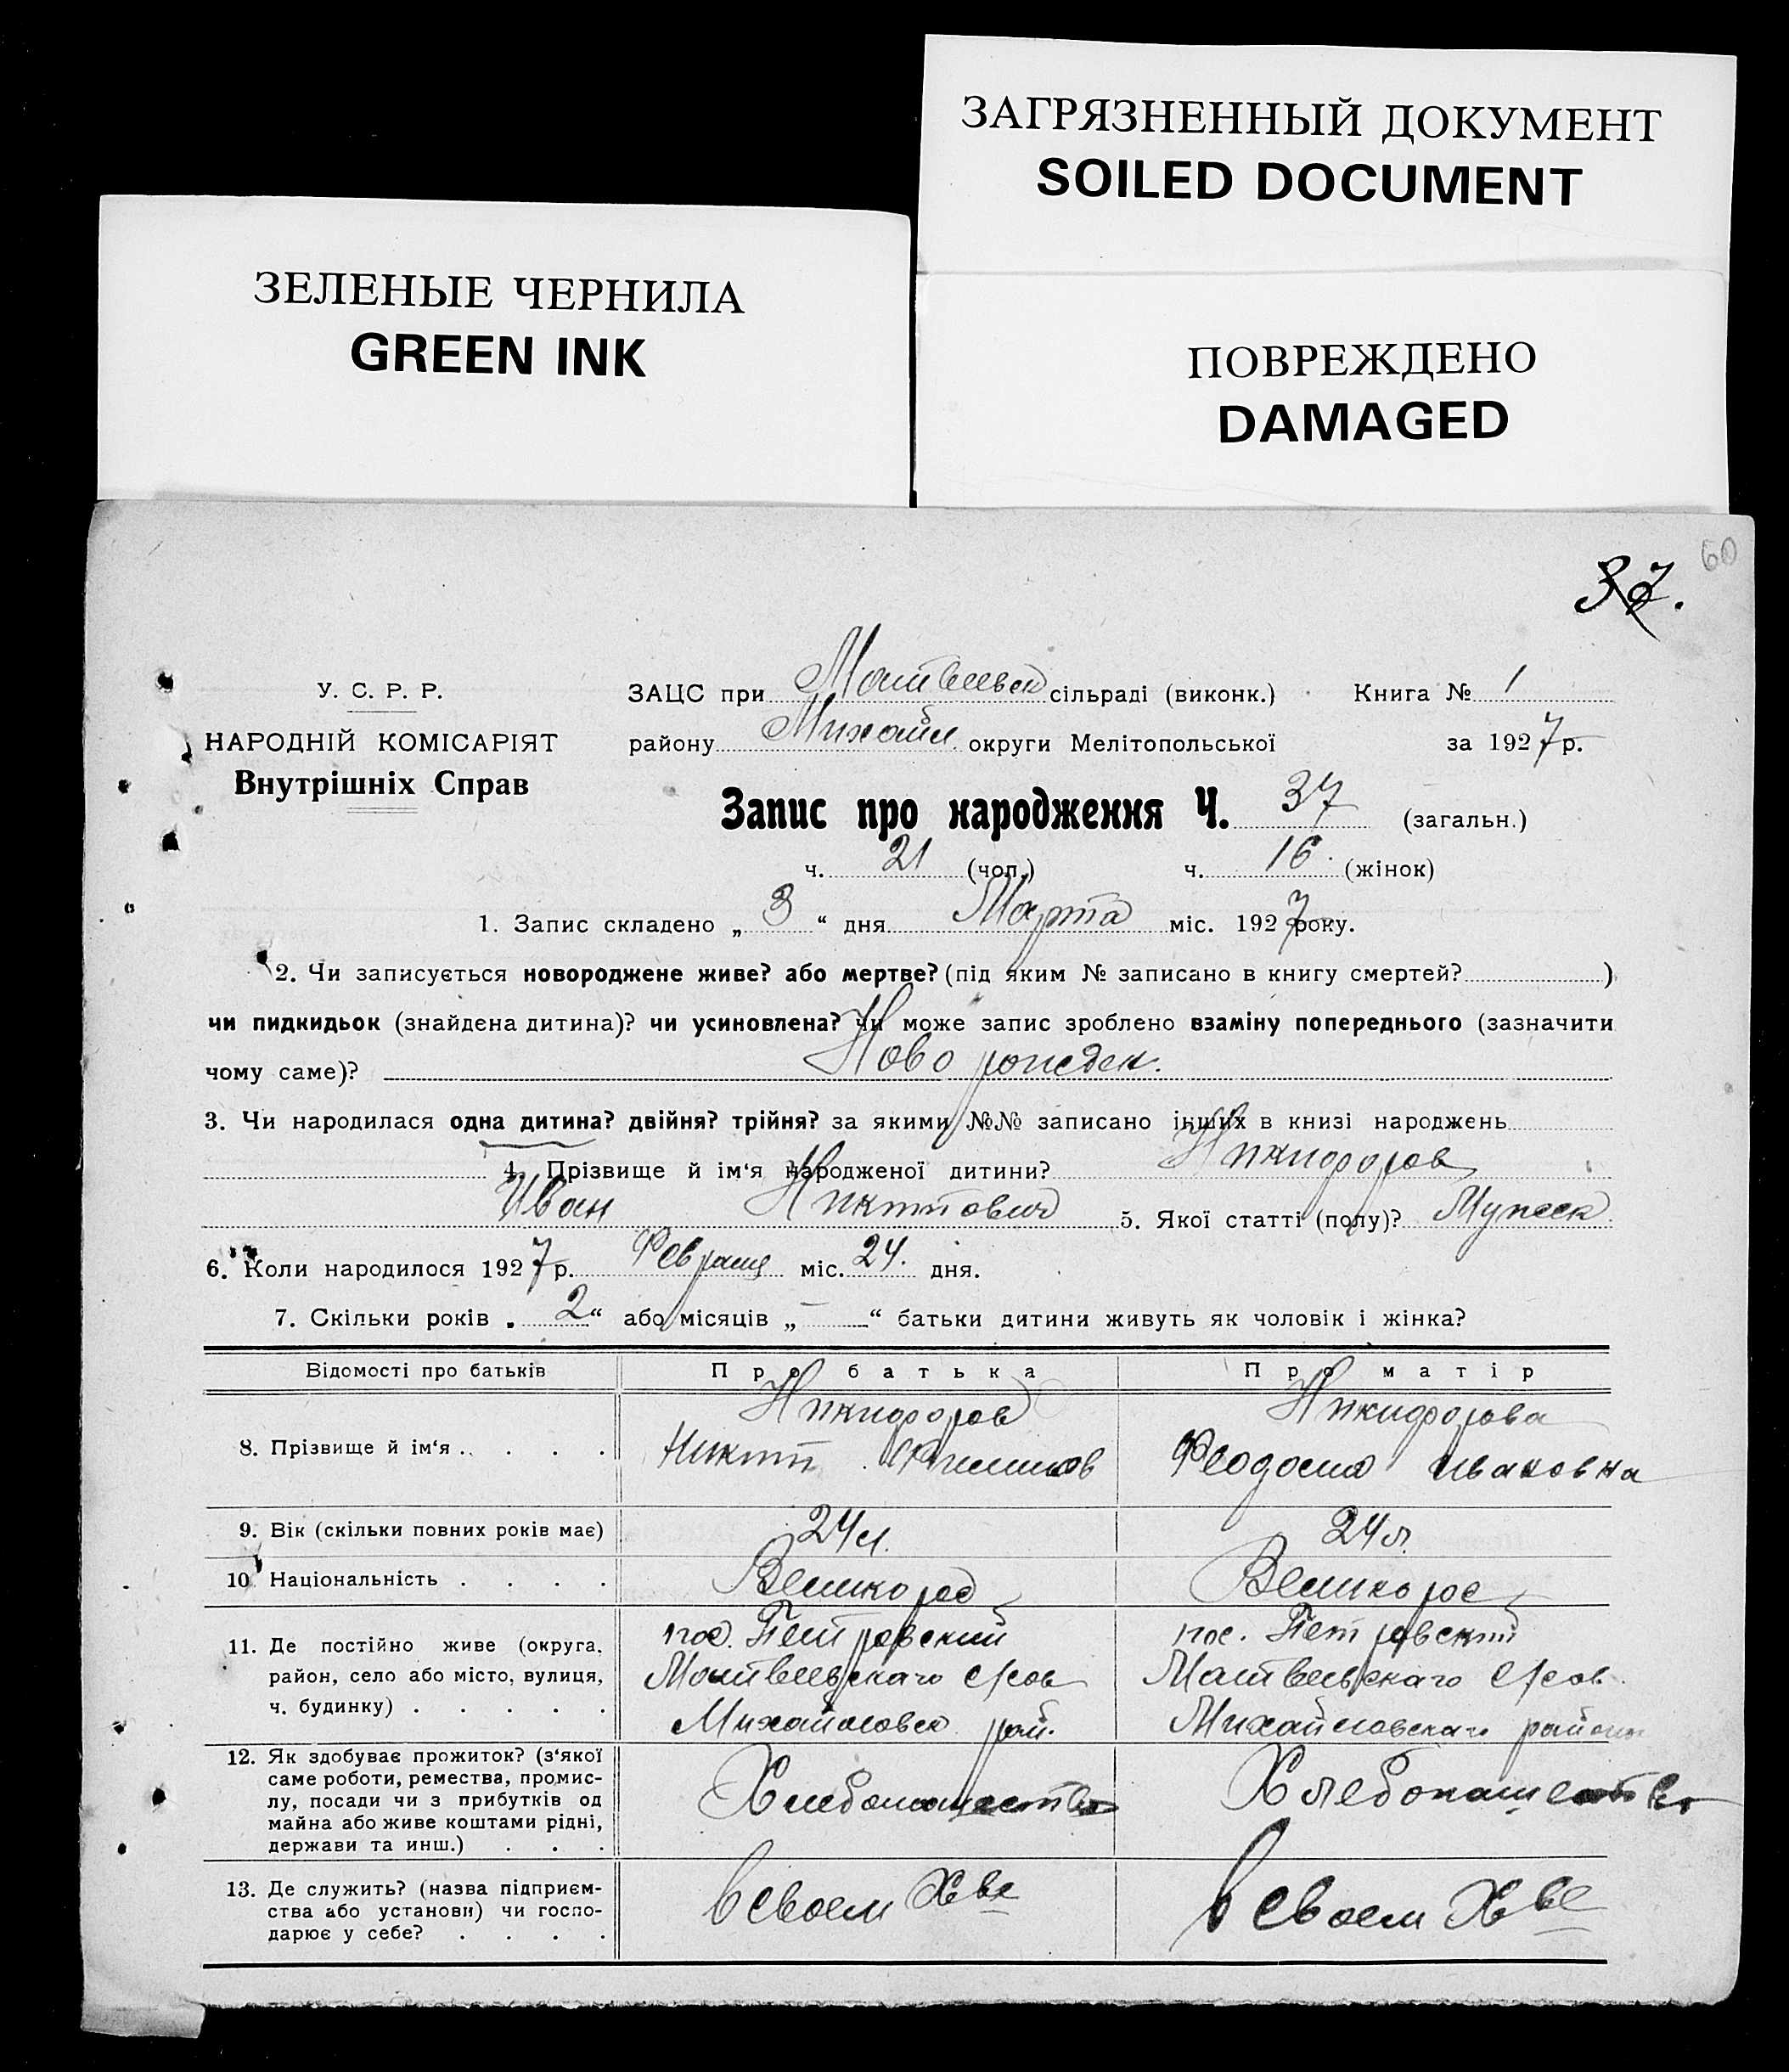 ЗАГРЯЗНЕННЫЙ ДОКУМЕНТ
SOILED DOCUMENT
ЗЕЛЕНЫЕ ЧЕРНИЛА
GREEN INK
ПОВРЕЖДЕНО
DAMAGED
60
37.
У. С. Р. Р.
НАРОДНІЙ КОМІСАРІЯТ
Внутрішніх Справ
ЗАЦС при Матвеевск сільраді (виконк.) Книга № 1
району Михайл. округи Мелітопольської за 1927 р.
Запис про народження Ч. 37 (загальн.)
ч. 21 (чол.) ч. 16. (жінок)
1. Запис складено „ 3 “ дня Марта міс. 1927 року.
2. Чи записується новороджене живе? або мертве? (під яким № записано в книгу смертей? )
чи пидкидьок (знайдена дитина)? чи усиновлена? чи може запис зроблено взаміну попереднього (зазначити
чому саме)? Ново рожден.
3. Чи народилася одна дитина? двійня? трійня? за якими №№ записано інших в книзі народжень
4. Прізвище й ім‘я народженої дитини? Никифоров
Иван Никитович 5. Якої статті (полу)? Мужск
6. Коли народилося 1927 р. Февраля міс. 24. дня.
7. Скільки років „ 2 “ або місяців „ — “ батьки дитини живуть як чоловік і жінка?
Відомості про батьків Про батька Про матір
8. Прізвище й ім‘я . . . . . Никифоров Никифорова
Никит Феодосия Ивановна
9. Вік (скільки повних років має) 24 л. 24 л.
10 Національність . . . . Великорос Великорос
11. Де постійно живе (округа, район, село або місто, вулиця, ч. будинку) . . . . .
пос. Петровский пос. Петровский
Матвеевскаго с/сов Матвеевскаго с/сов.
Михайловск рай. Михайловскаго района
12. Як здобуває прожиток? (з‘якої саме роботи, ремества, промислу, посади чи з прибутків од майна або живе коштами рідні, держави та инш.) . . .
Хлебопашество Хлебопашество
13. Де служить? (назва підприємства або установи) чи господарює у себе? . . . .
в своем Х-ве в своем Х-ве